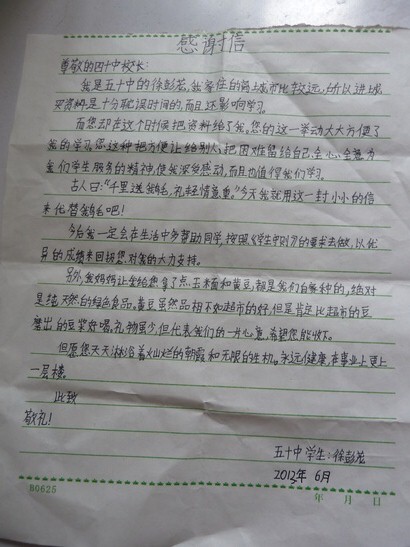 感谢信
尊敬的四十中校长:
我是五十中的徐彭龙,我家住的离上城市比较远,所以进城
买资料是十分耽误时间的,而且还影响学习。
而您却在这个时候把资料给了我。您的这一举动大大方便了
我的学习。您这种把方便让给别人,把困难留给自己,全心全意为
我们学生服务的精神,使我深受感动,而且也值得我们学习。
古人曰:"千里送鹅毛,礼轻情意重。"今天我就用这一封小小的信
来代替鹅毛吧!
今后我一定会在生活中多帮助同学,按照《学生守则》的要求去做,以优
异的成绩来回报您对我的大力支持。
另外,我妈妈让我给您拿了点玉米面和黄豆,都是我们自家种的,绝对
是纯天然的绿色食品。黄豆虽然品相不如超市的好,但是肯定比超市的豆
磨出的豆浆好喝。礼物虽少但代表我们的一片心意,希望您能收下。
但愿您天天沐浴着灿烂的朝霞和无限的生机。永远健康,在事业上更上
一层楼。
此致
敬礼!
五十中学生:徐彭龙
2012年 6月
B0625
年 月 日